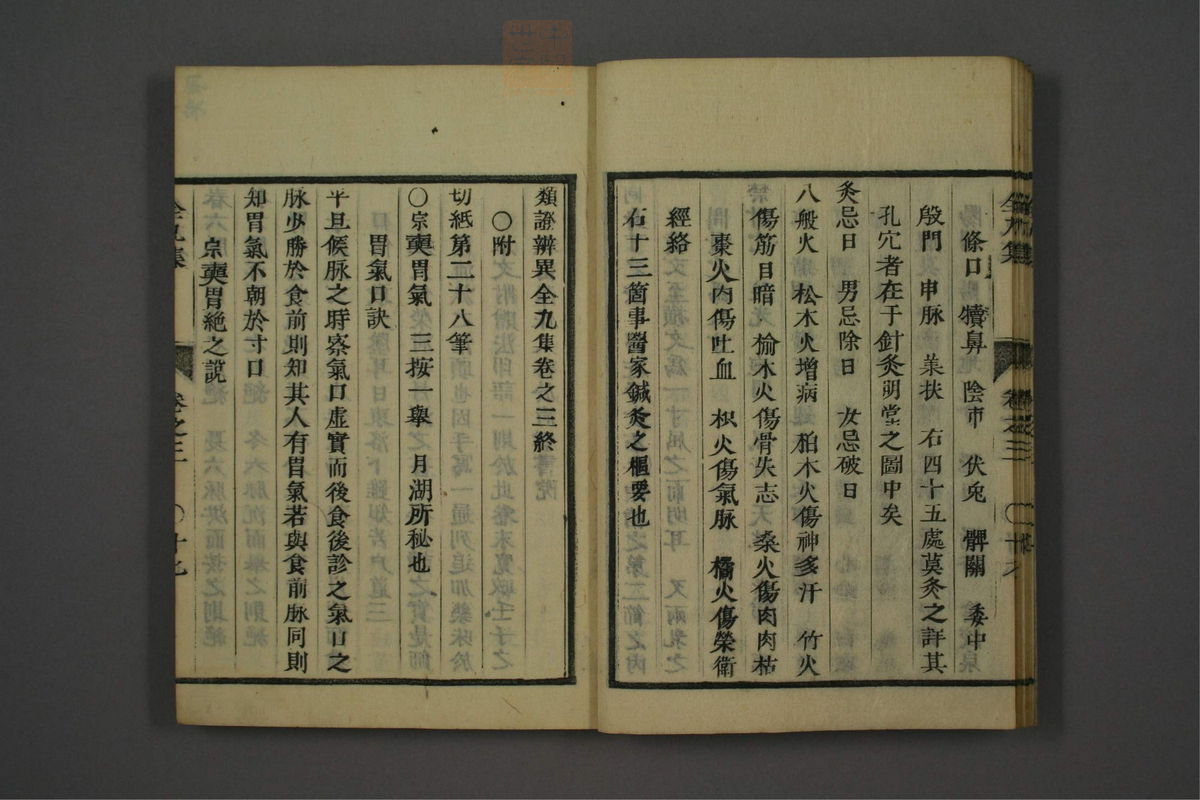 條口　犢鼻　陰市　伏兎　髀關　委中
殷門　申脉　　右四十五處莫灸之詳其
孔穴者在于針灸明堂之圖中矣
灸忌日　男忌除日　女忌破日
八般火　松木火增病　柏木火傷神多汗　竹火
傷筋目暗　榆木火傷骨失志　桑火傷肉肉枯
棗火内傷吐血　枳火傷氣脉　橘火傷榮衛
經絡
右十三箇事醫家鍼灸之樞要也
類證辨異全九集卷之三終
〇附
切紙第二十八筆
〇宗奭胃氣　三按一舉　月湖所秘也
胃氣口訣
平旦候脉之時察氣口虛實而後食後診之氣口之
脉少勝於食前則知其人有胃氣若與食前脉同則
知胃氣不朝於寸口
宗奭胃絶之說
全九集　卷之三　〇十九